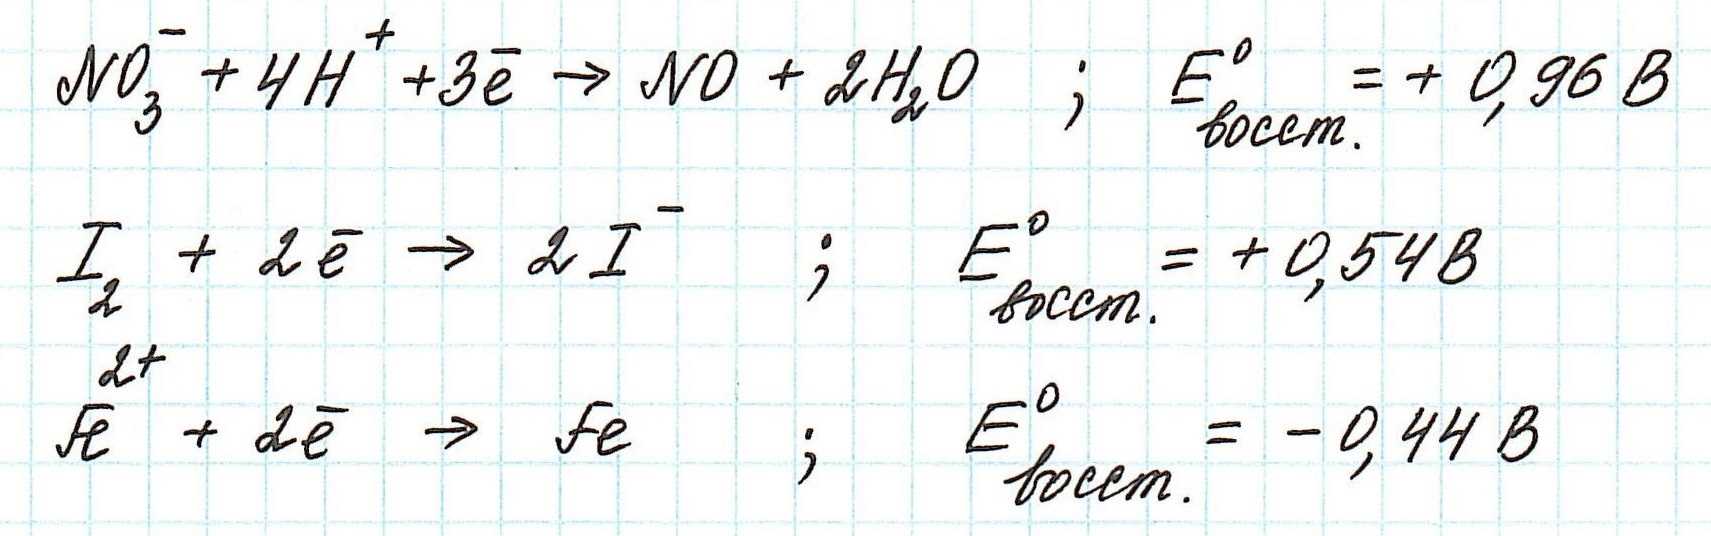 NO₃⁻ + 4H⁺ + 3ē → NO + 2H₂O ; E⁰восст. = + 0,96 В
I₂ + 2ē → 2I⁻ ; E⁰восст. = + 0,54 В
Fe²⁺ + 2ē → Fe ; E⁰восст. = - 0,44 В